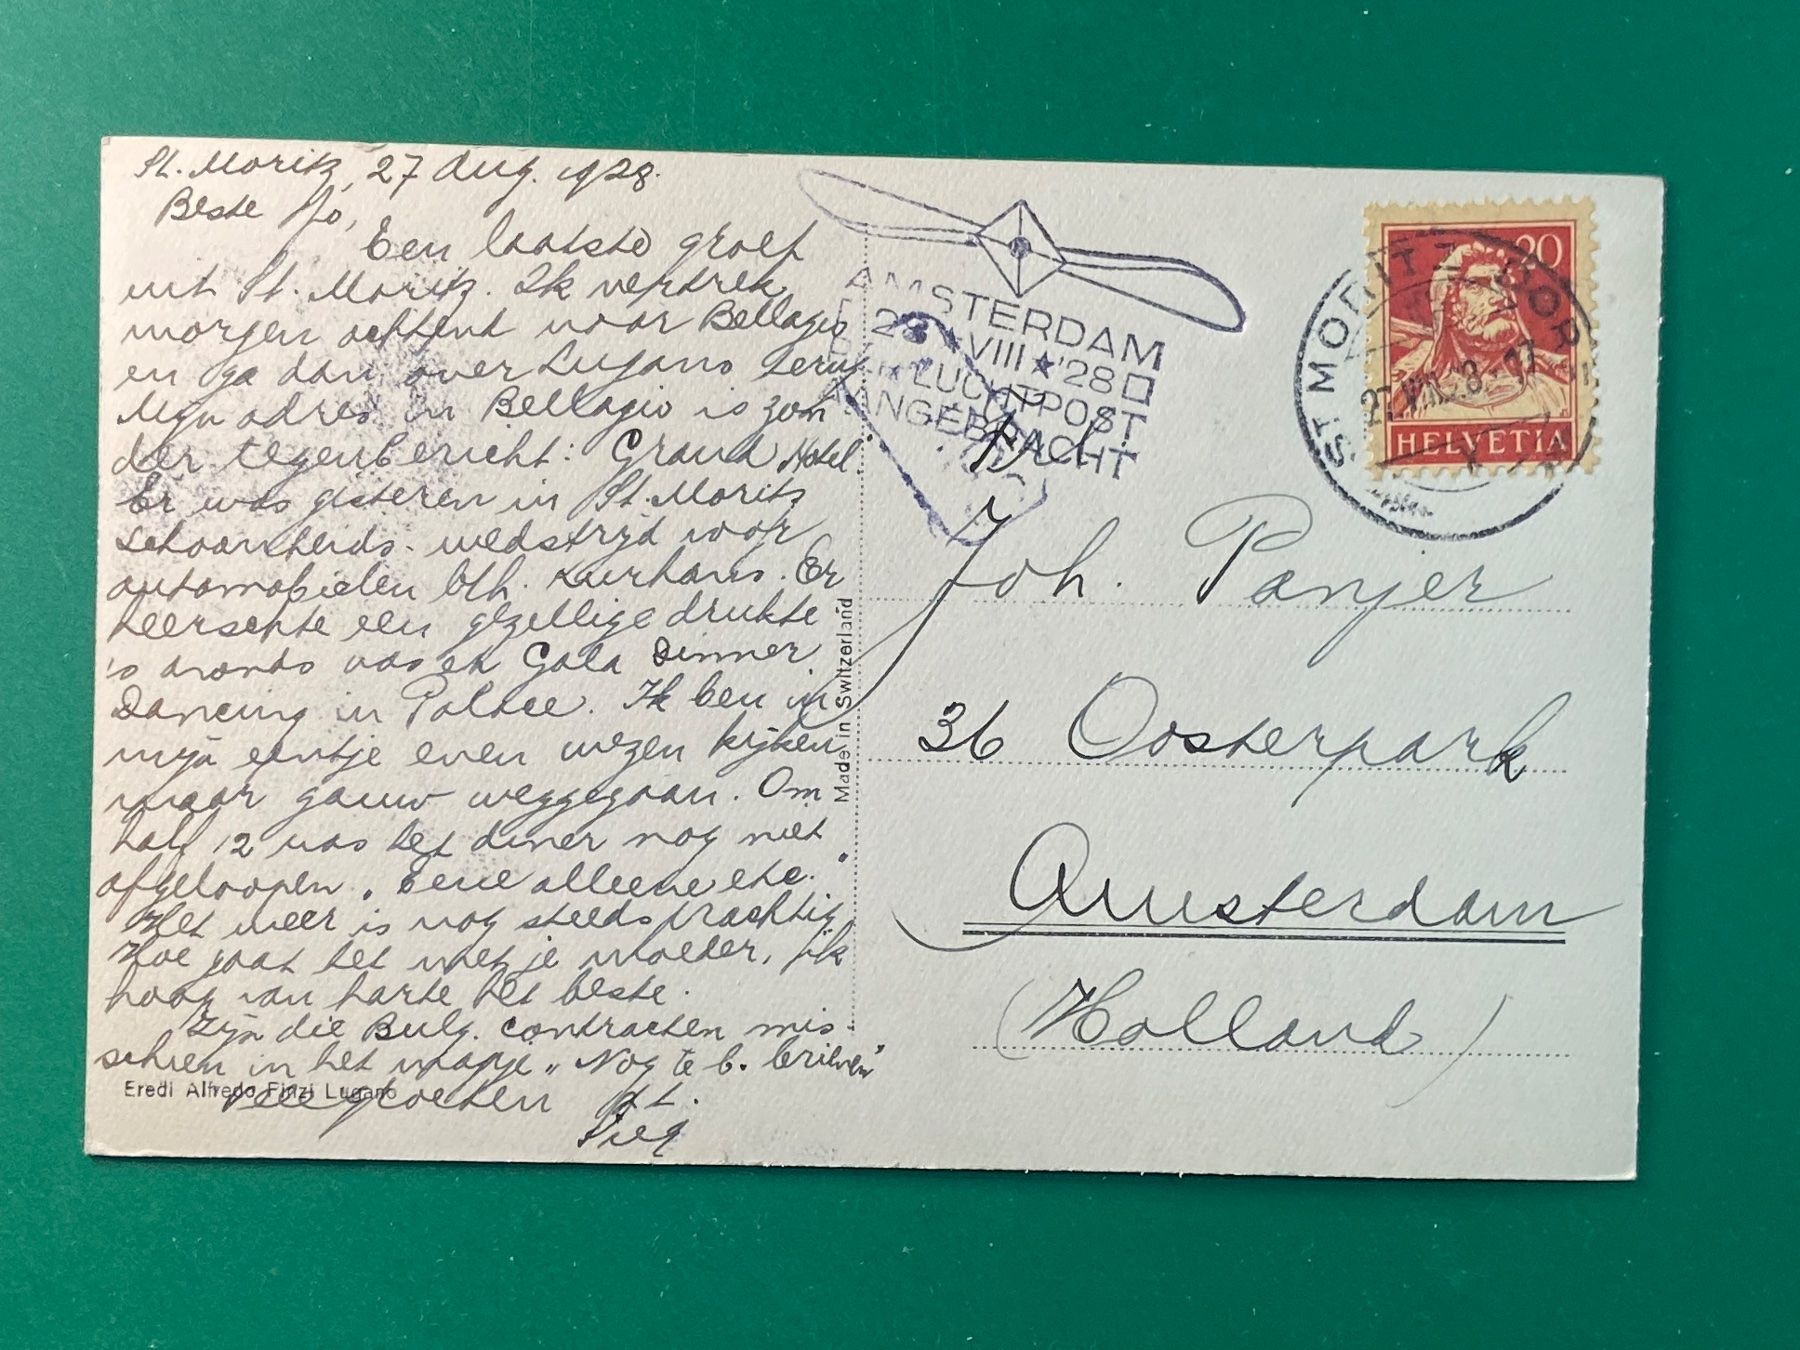 St. Moritz, 27 Aug. 1928.
Beste Jo,
Een laatste groet
uit St. Moritz. Ik vertrek
morgen ochtend naar Bellagio
en ga dan over Lugano terug
Mijn adres in Bellagio is zon
der tegenbericht: Grand Hotel.
Er was gisteren in St. Moritz
schoonheids-wedstrijd voor
automobielen bth. Kurhaus. Er
heerschte een gezellige drukte
's avonds was er Gala Dinner
Dancing in Palace. Ik ben in
mijn eentje even wezen kijken
maar gauw weggegaan. Om
half 12 was het diner nog niet
afgeloopen. " alleene etc."
Het weer is nog steeds prachtig
Hoe gaat het met je moeder, ik
hoop van harte het beste.
Zijn die Bulg. contracten mis
schien in het mapje „Nog te b.
Eredi Alfredo Finzi Lugano
Veel groeten
Made in Switzerland
AMSTERDAM
28 ★ VIII ★ '28
LUCHTPOST
AANGEBRACHT
ST. MORITZ-DORF
27.VIII.28-17
20
HELVETIA
Joh. Panjer
36 Oosterpark
Amsterdam
(Holland)